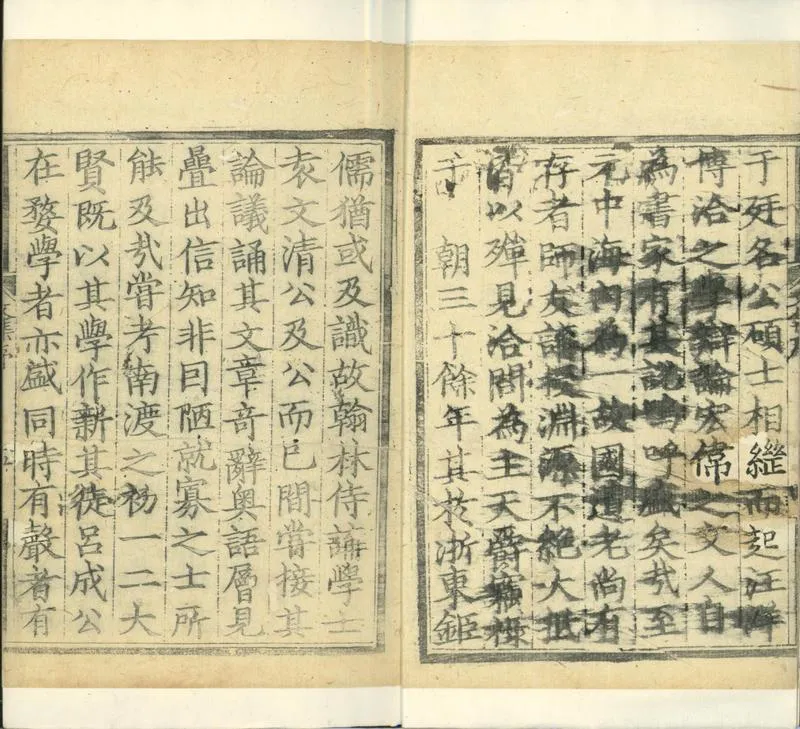 于廷名公碩士相繼而起汪洋
博洽之學辯論宏偉之文人自
為書家有其說嗚呼盛矣哉至
元中海內為一故國遺老尚有
存者師友講授淵源不絕大抵
皆以殫見洽聞為主天爵竊祿
于 朝三十餘年其於浙東鉅
儒猶或及識故翰林侍講學士
袁文清公及公而已間嘗接其
論議誦其文章奇辭奧語層見
疊出信知非固陋就寡之士所
能及哉嘗考南渡之初一二大
賢既以其學作新其徒呂成公
在婺學者亦盛同時有聲者有